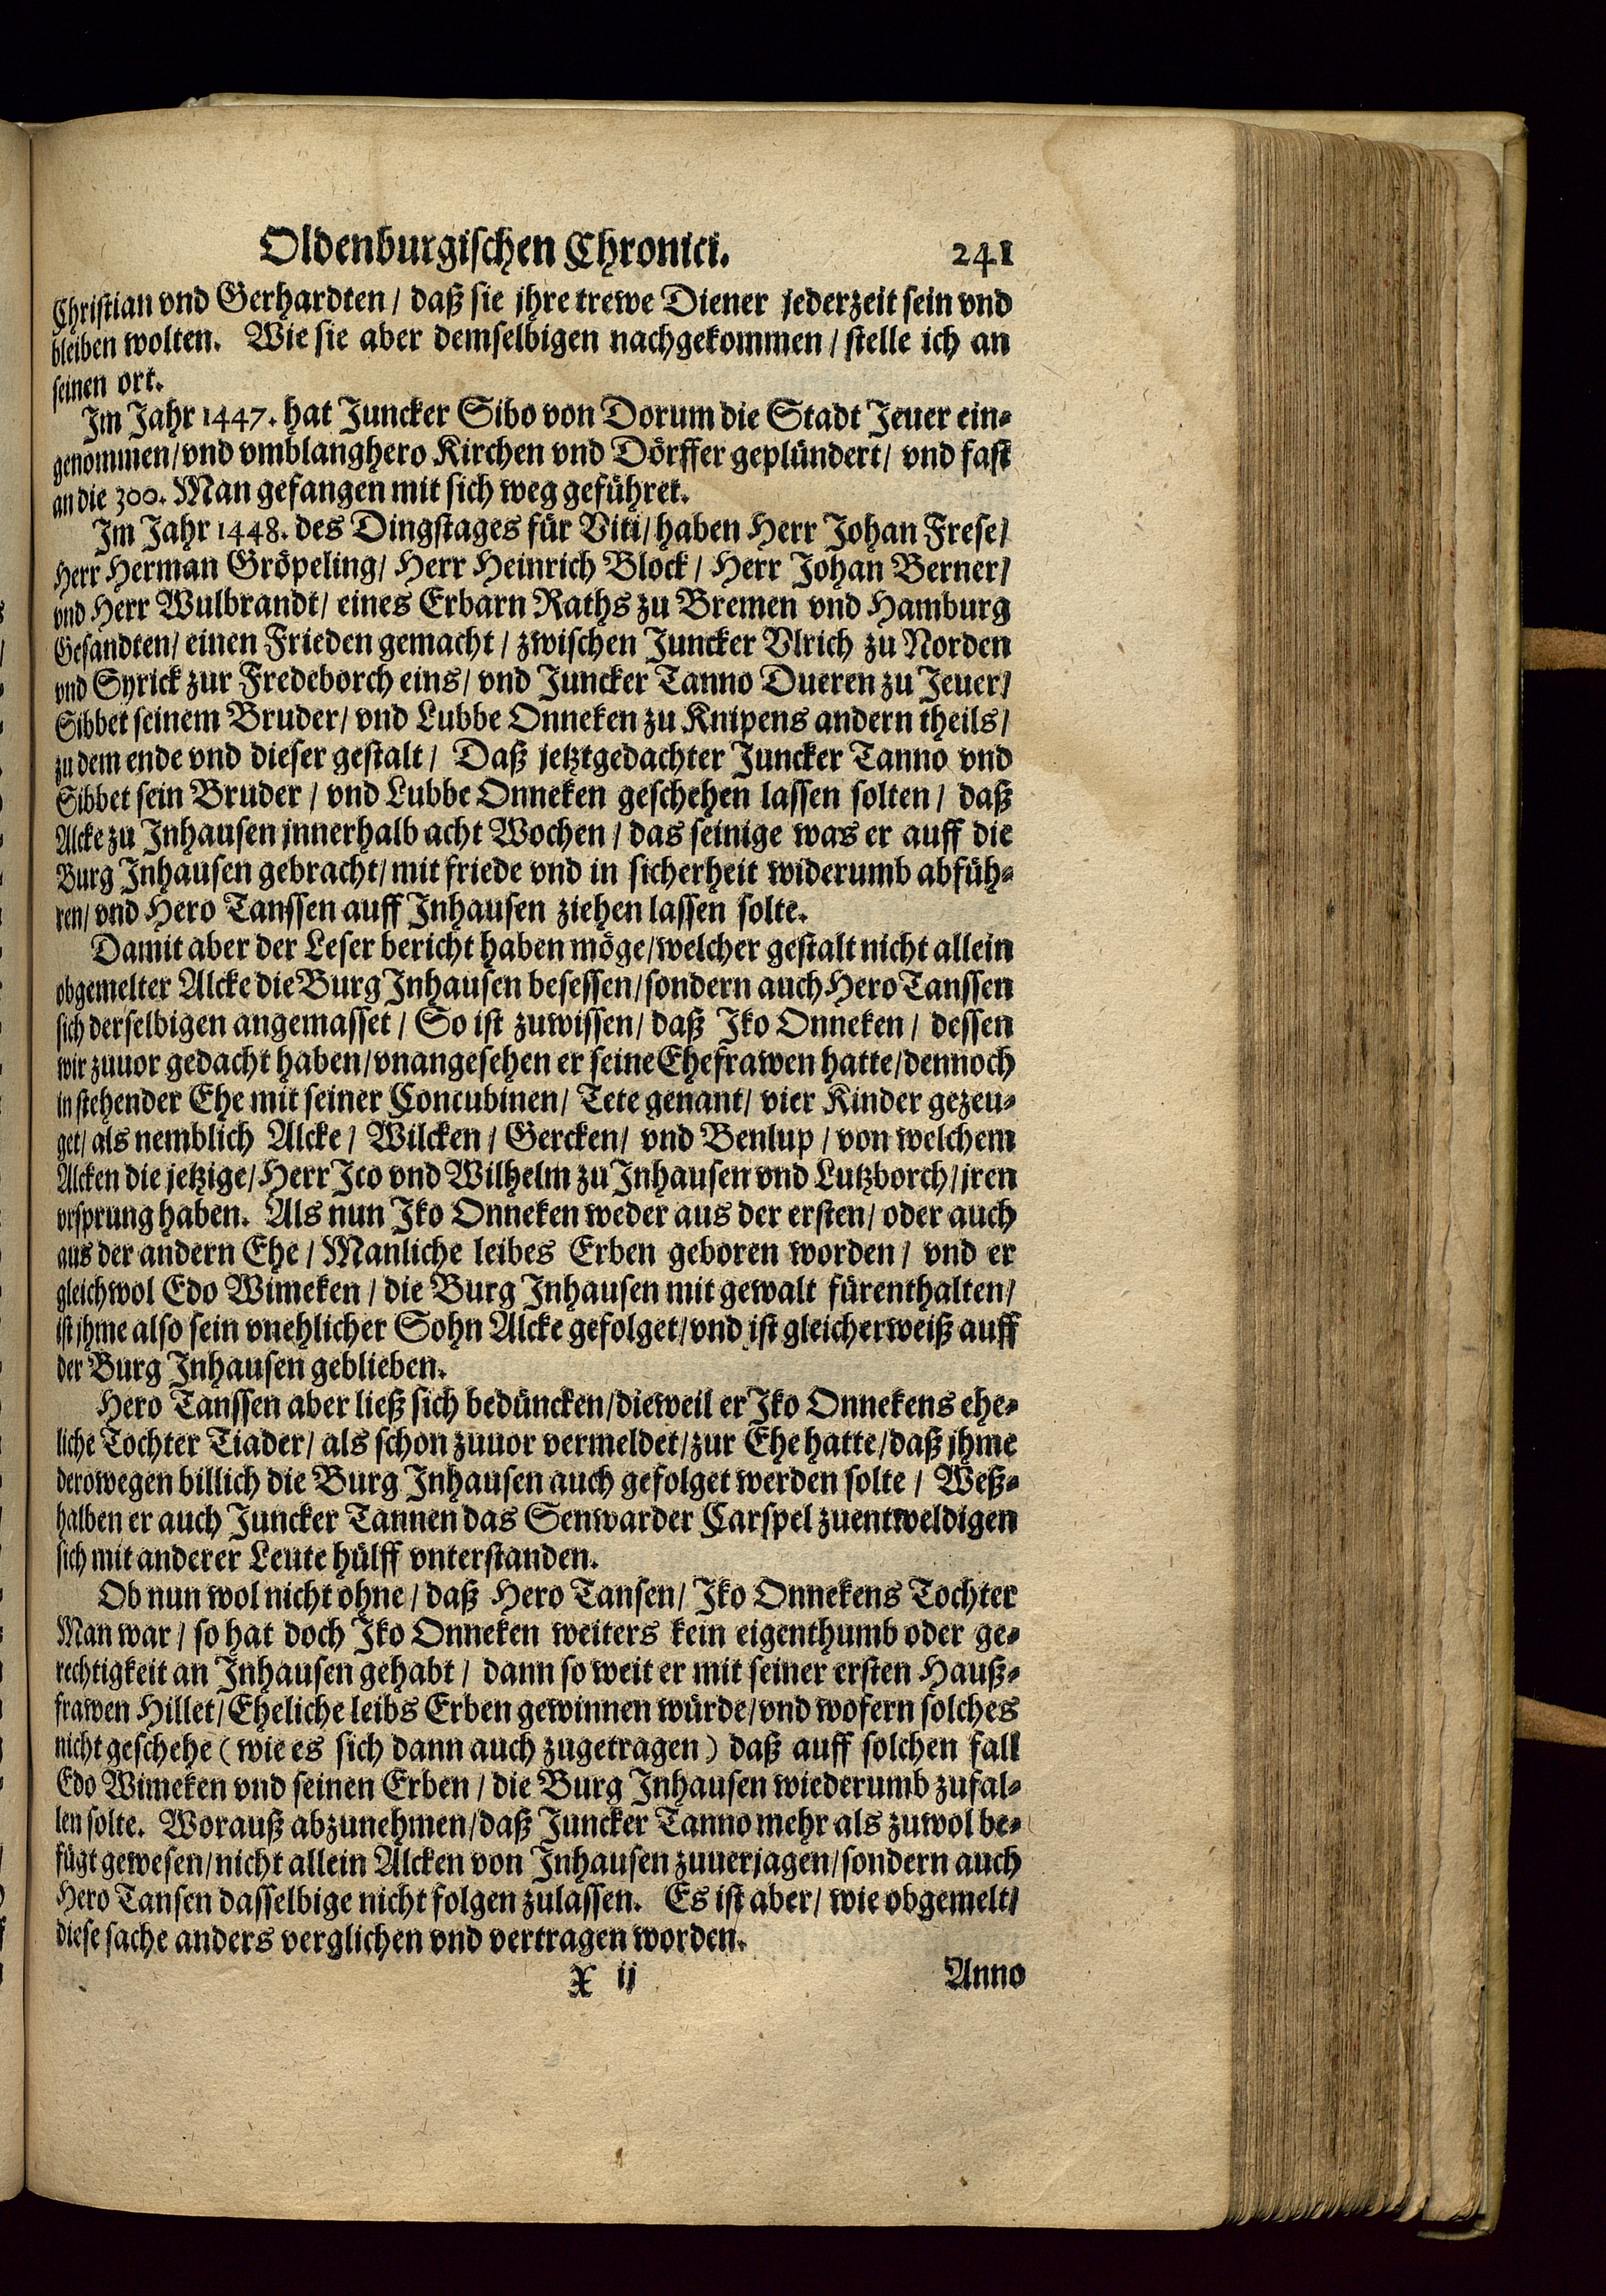 Oldenburgischen Chronici. 241
Christian vnd Gerhardten / daß sie jhre trewe Diener jederzeit sein vnd
bleiben wolten. Wie sie aber demselbigen nachgekommen / stelle ich an
seinen ort.
Im Jahr 1447. hat Juncker Sibo von Dorum die Stadt Jeuer ein-
genommen / vnd vmblanghero Kirchen vnd Dörffer geplündert / vnd fast
an die 300. Man gefangen mit sich weg geführet.
Im Jahr 1448. des Dingstages für Viti / haben Herr Johan Frese /
Herr Herman Gröpeling / Herr Heinrich Block / Herr Johan Berner /
vnd Herr Wulbrandt / eines Erbarn Raths zu Bremen vnd Hamburg
Gesandten / einen Frieden gemacht / zwischen Juncker Vlrich zu Norden
vnd Syrick zur Fredeborch eins / vnd Juncker Tanno Dueren zu Jeuer /
Sibbet seinem Bruder / vnd Lubbe Onneken zu Knipens andern theils /
zu dem ende vnd dieser gestalt / Daß jetztgedachter Juncker Tanno vnd
Sibbet sein Bruder / vnd Lubbe Onneken geschehen lassen solten / daß
Alcke zu Inhausen jnnerhalb acht Wochen / das seinige was er auff die
Burg Inhausen gebracht / mit friede vnd in sicherheit widerumb abfüh-
ren / vnd Hero Tanssen auff Inhausen ziehen lassen solte.
Damit aber der Leser bericht haben möge / welcher gestalt nicht allein
obgemelter Alcke die Burg Inhausen besessen / sondern auch Hero Tanssen
sich derselbigen angemasset / So ist zuwissen / daß Iko Onneken / dessen
wir zuuor gedacht haben / vnangesehen er seine Ehefrawen hatte / dennoch
in stehender Ehe mit seiner Concubinen / Tete genant / vier Kinder gezeu-
get / als nemblich Alcke / Wilcken / Gercken / vnd Benlup / von welchem
Alcken die jetzige / Herr Ico vnd Wilhelm zu Inhausen vnd Lutzborch / jren
vrsprung haben. Als nun Iko Onneken weder aus der ersten / oder auch
aus der andern Ehe / Manliche leibes Erben geboren worden / vnd er
gleichwol Edo Wimeken / die Burg Inhausen mit gewalt fürenthalten /
ist jhme also sein vnehlicher Sohn Alcke gefolget / vnd ist gleicherweiß auff
der Burg Inhausen geblieben.
Hero Tanssen aber ließ sich bedüncken / dieweil er Iko Onnekens ehe-
liche Tochter Tiader / als schon zuuor vermeldet / zur Ehe hatte / daß jhme
derowegen billich die Burg Inhausen auch gefolget werden solte / Weß-
halben er auch Juncker Tannen das Senwarder Carspel zuentweldigen
sich mit anderer Leute hülff vnterstanden.
Ob nun wol nicht ohne / daß Hero Tansen / Iko Onnekens Tochter
Man war / so hat doch Iko Onneken weiters kein eigenthumb oder ge-
rechtigkeit an Inhausen gehabt / dann so weit er mit seiner ersten Hauß-
frawen Hillet / Eheliche leibs Erben gewinnen würde / vnd wofern solches
nicht geschehe (wie es sich dann auch zugetragen) daß auff solchen fall
Edo Wimeken vnd seinen Erben / die Burg Inhausen wiederumb zufal-
len solte. Worauß abzunehmen / daß Juncker Tanno mehr als zuwol be-
fügt gewesen / nicht allein Alcken von Inhausen zuuerjagen / sondern auch
Hero Tansen dasselbige nicht folgen zulassen. Es ist aber / wie obgemelt /
diese sache anders verglichen vnd vertragen worden.
X ij Anno